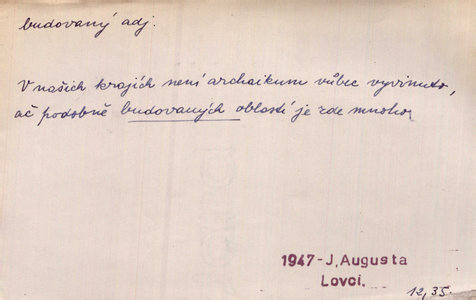 budovaný adj.
V našich krajích není archaikum vůbec vyvinuto,
ač podobně budovaných oblastí je zde mnoho
1947-J. Augusta
Lovci.
12, 35.